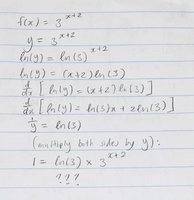 f(x) = 3^{x+2}
y = 3^{x+2}
ln(y) = ln(3)^{x+2}
ln(y) = (x+2) ln(3)
d/dx [ln(y) = (x+2) ln(3)]
d/dx [ln(y) = ln(3)x + 2ln(3)]
1/y = ln(3)
(multiply both sides by y):
1 = ln(3) × 3^{x+2}
???